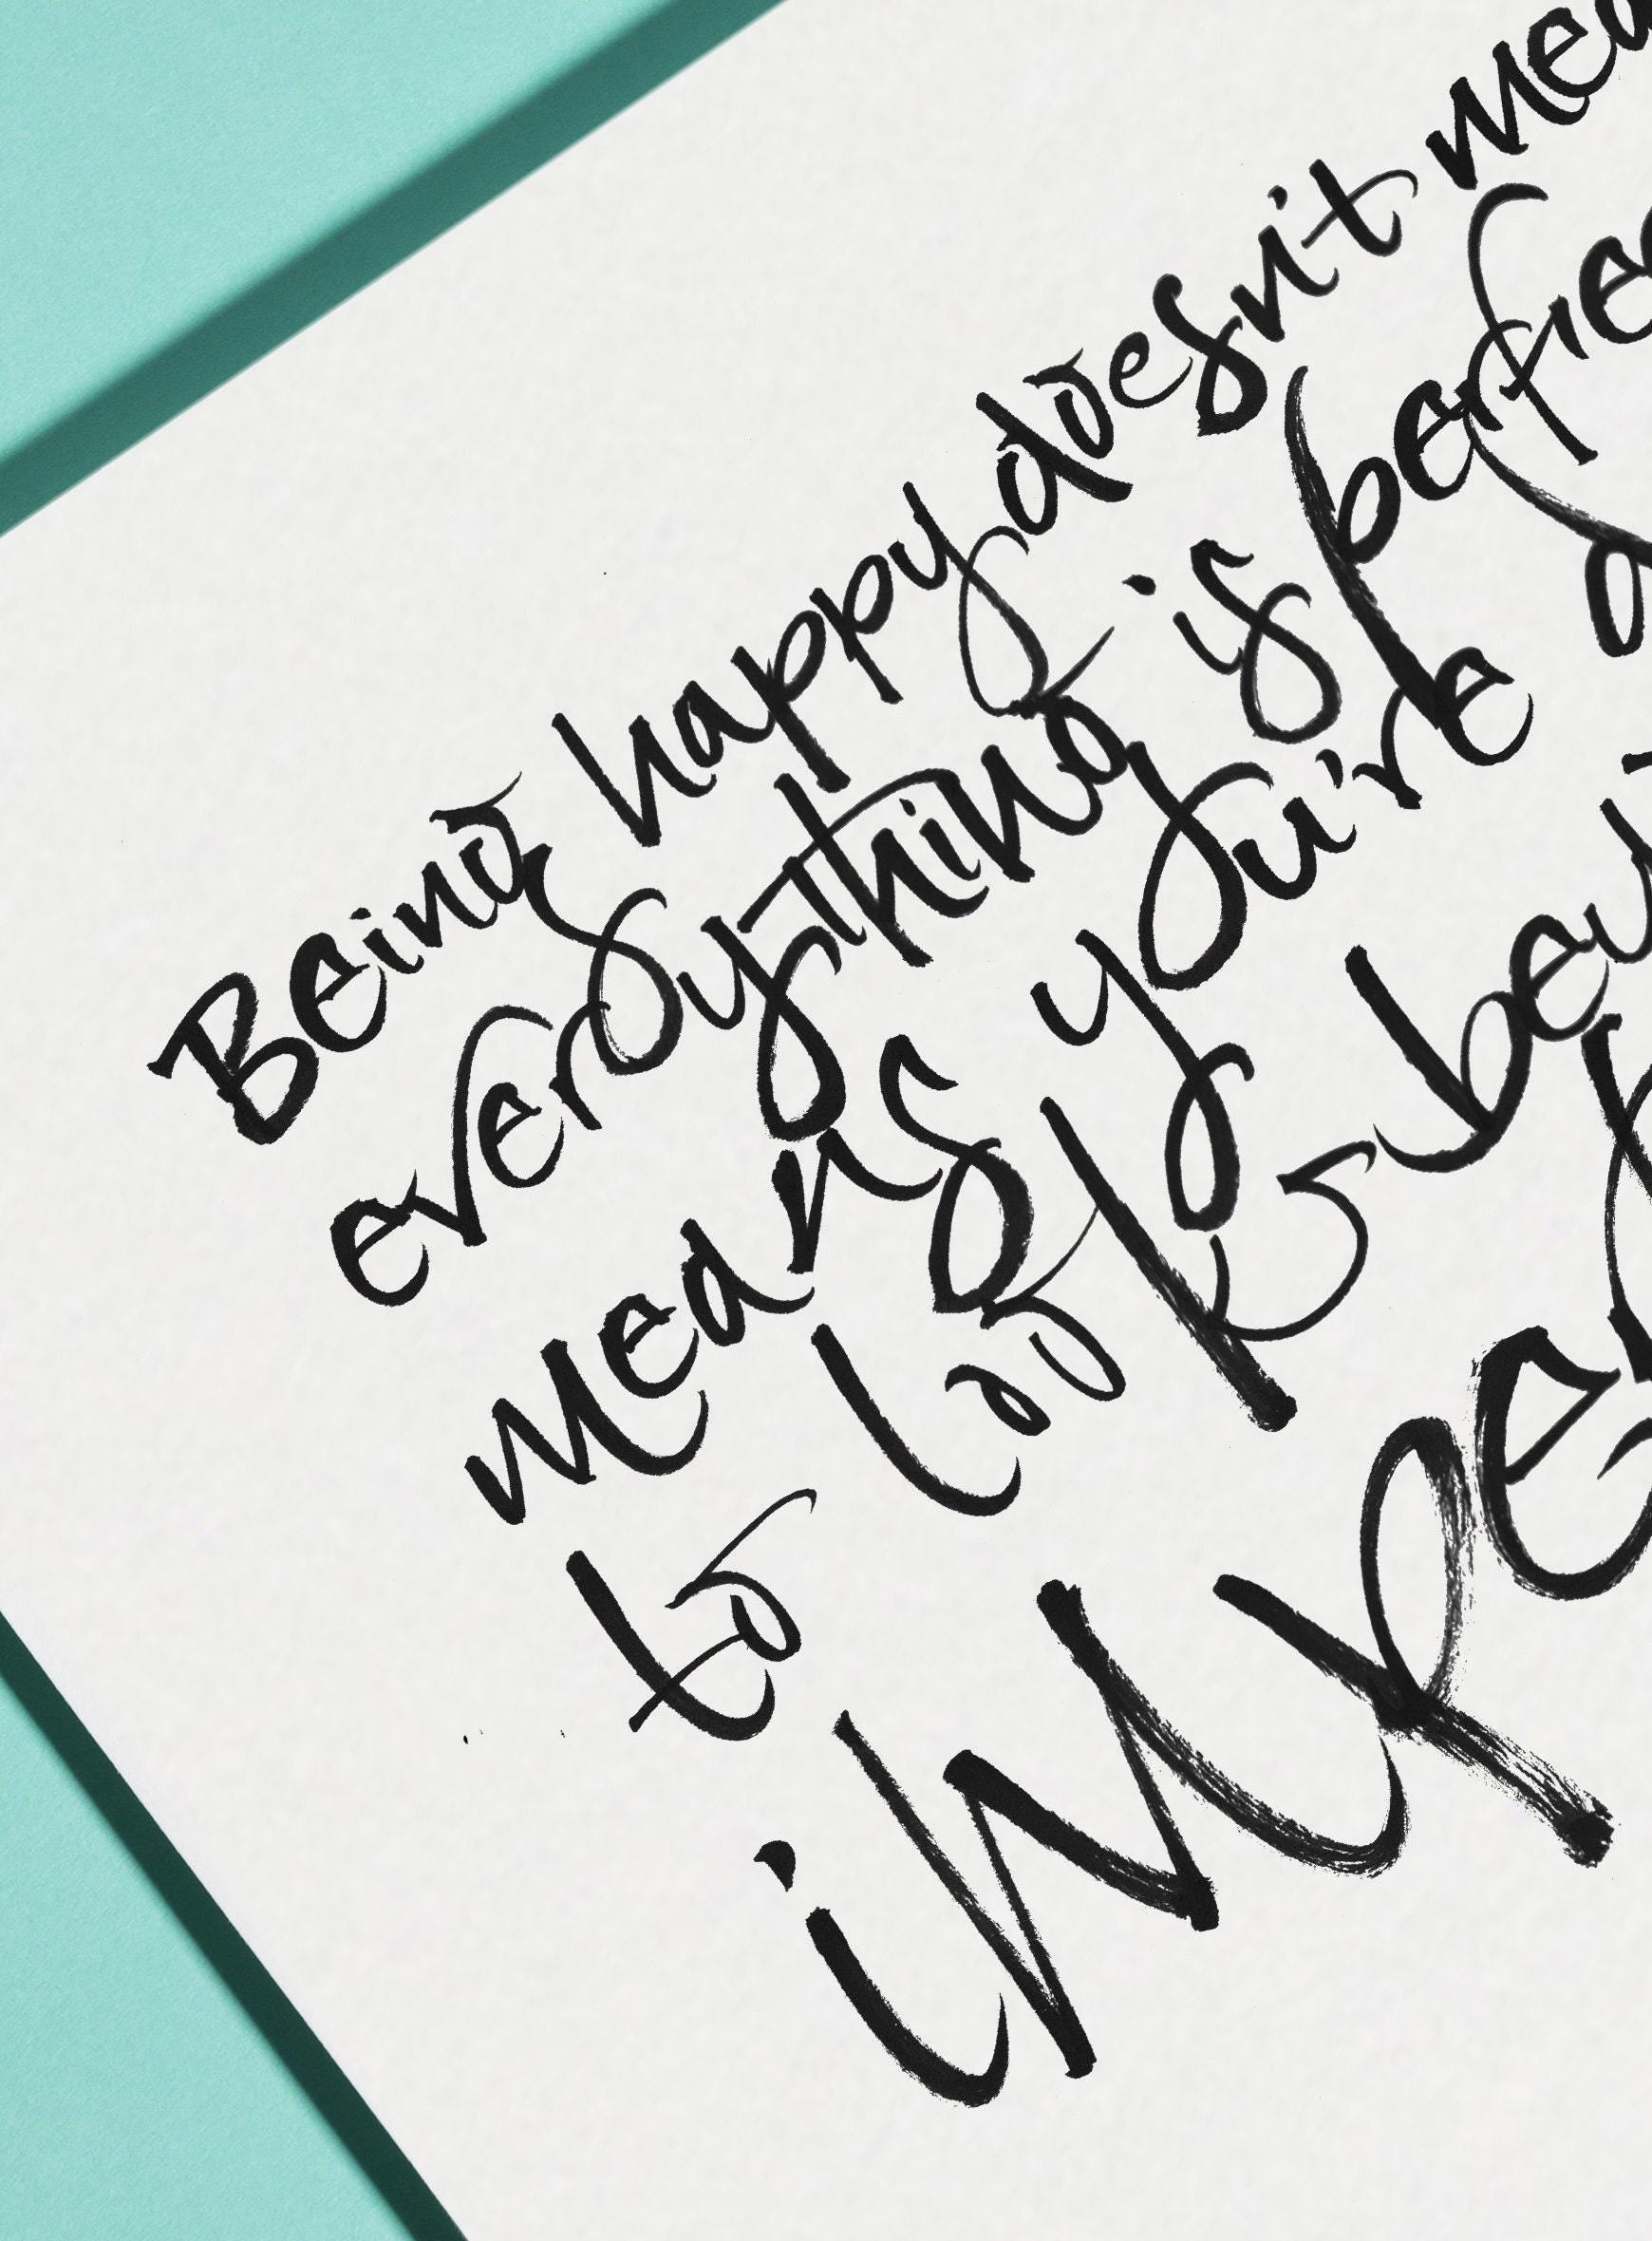 Being happy doesn't mea
everything is perfec
means you're d
to look beyo
imper